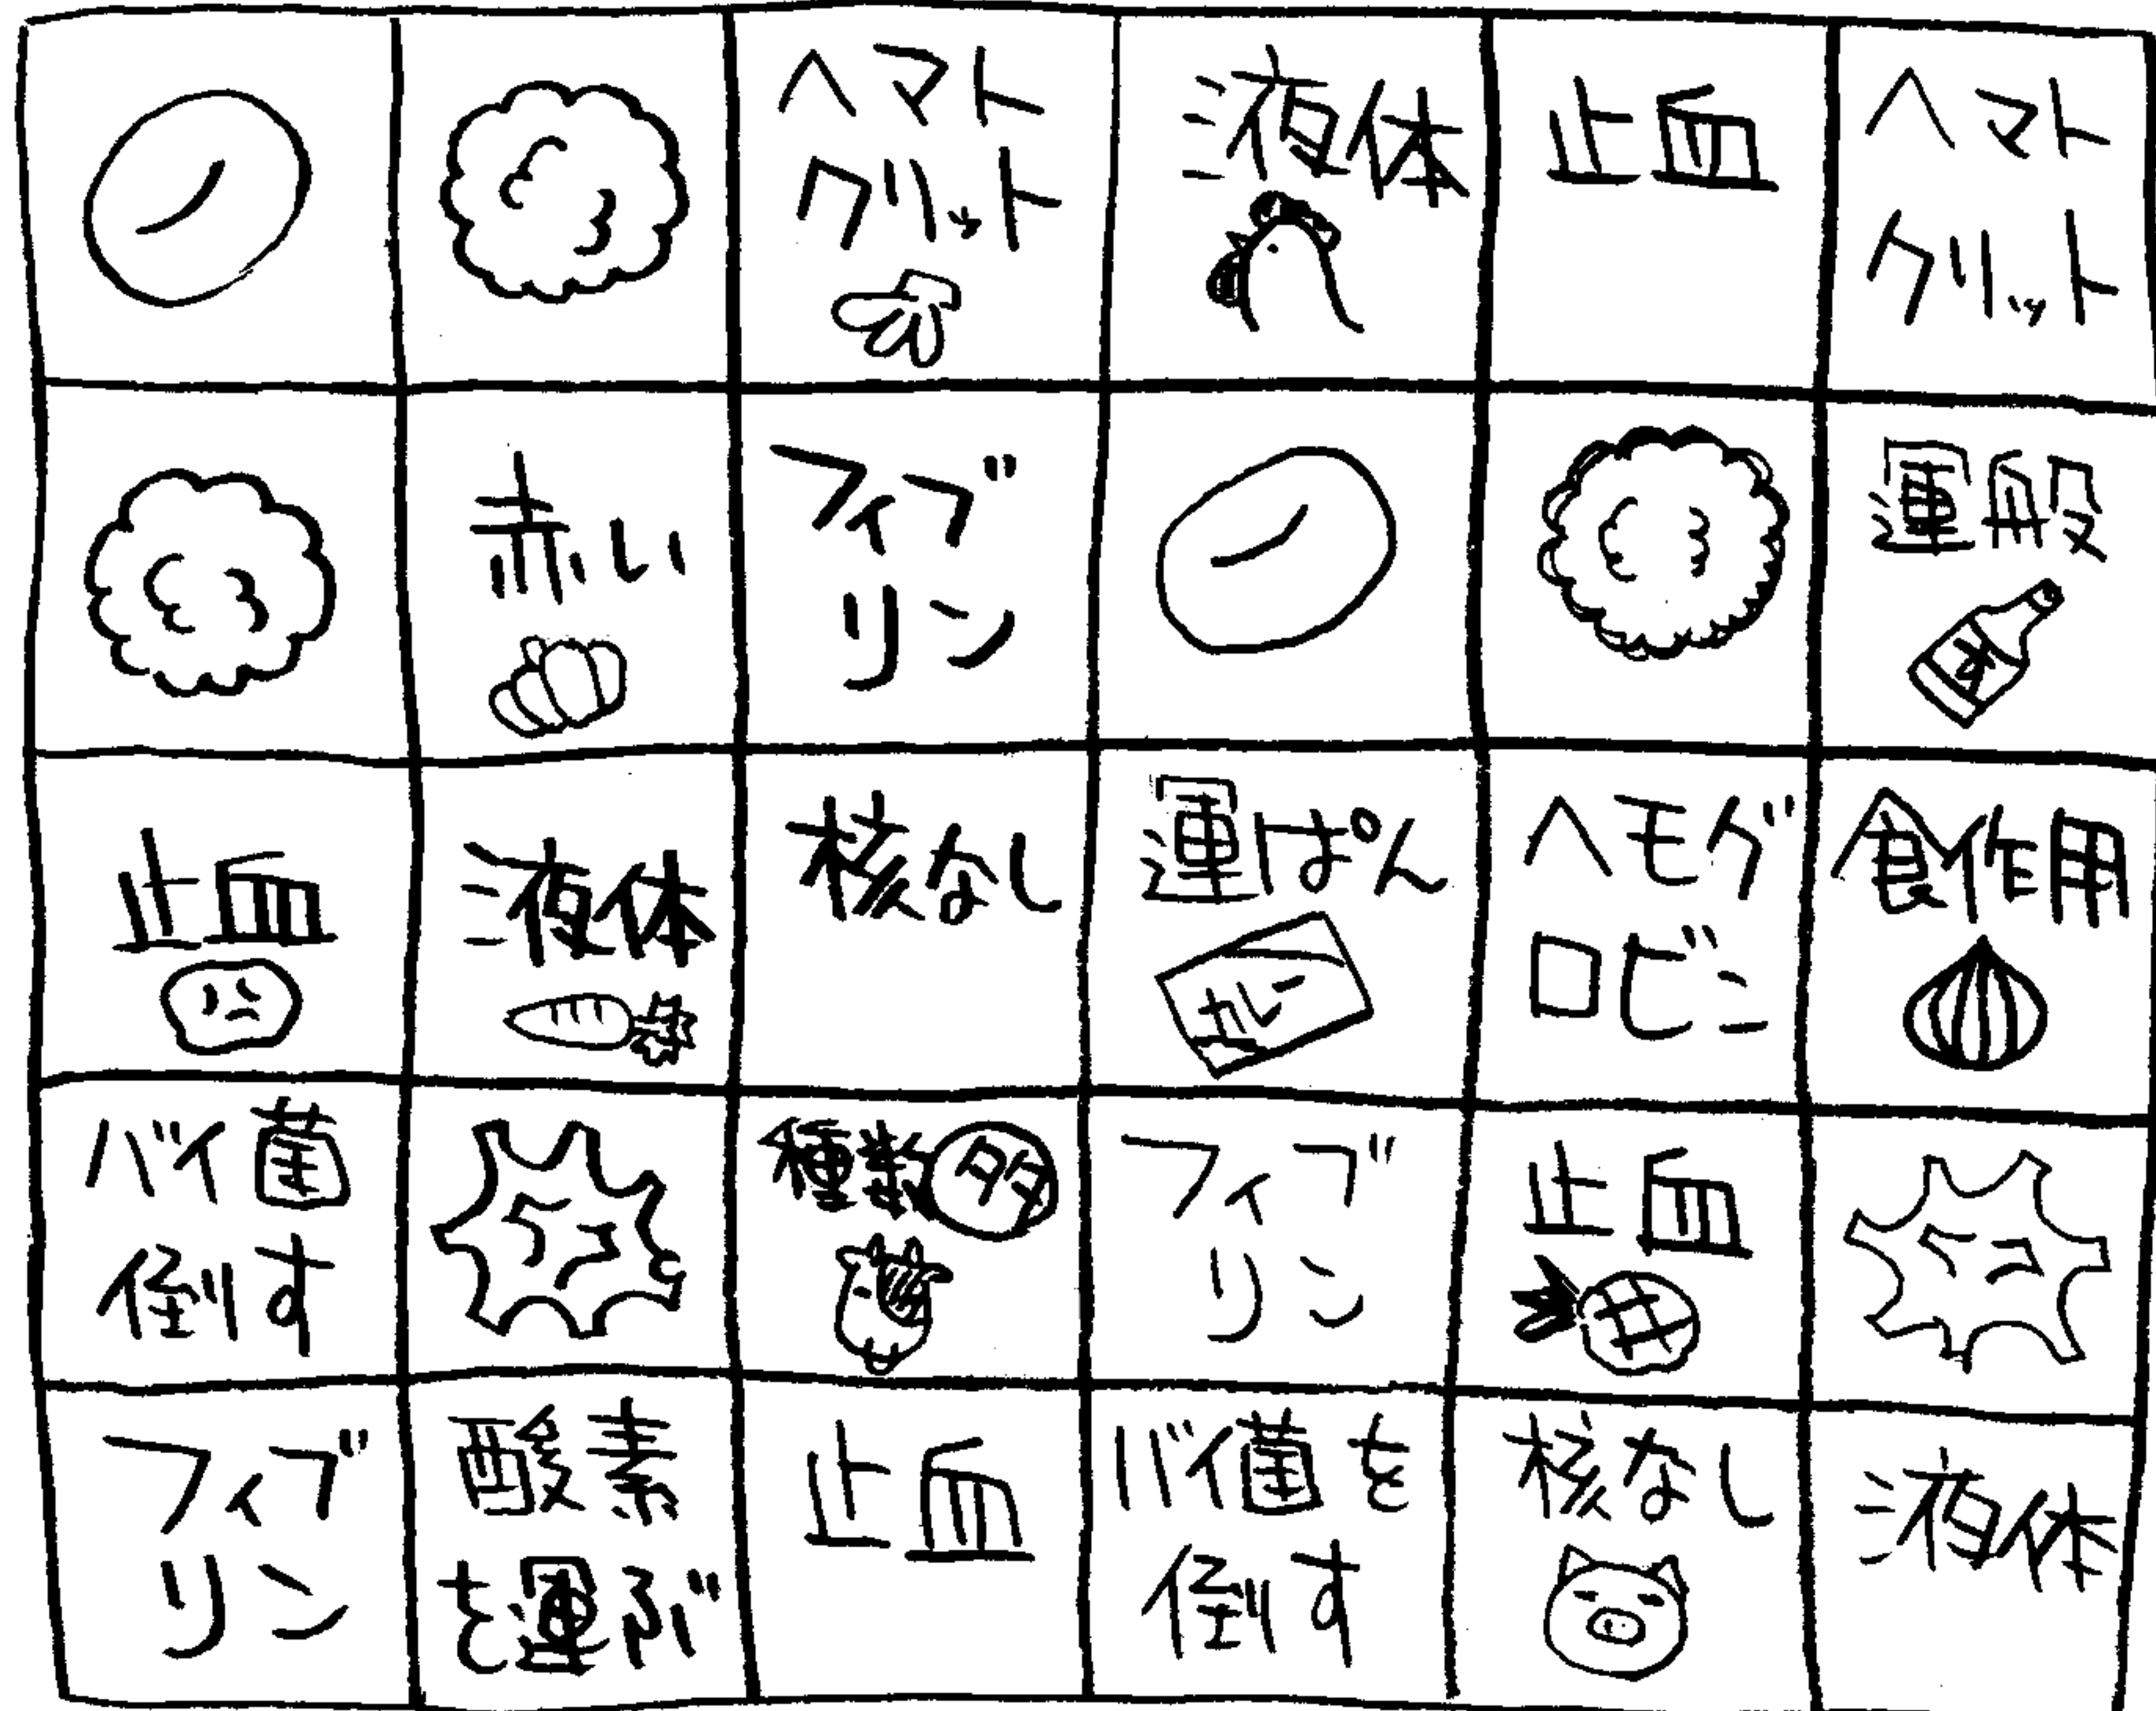 ヘマト
クリット
液体
止血
ヘマト
クリット
赤い
フィブ
リン
運般
止血
液体
核なし
運ぱん
カレー
ヘモグ
ロビン
食作用
バイ菌
倒す
種数多
フィブ
リン
止血
フィブ
リン
酸素
を運ぶ
止血
バイ菌を
倒す
核なし
液体